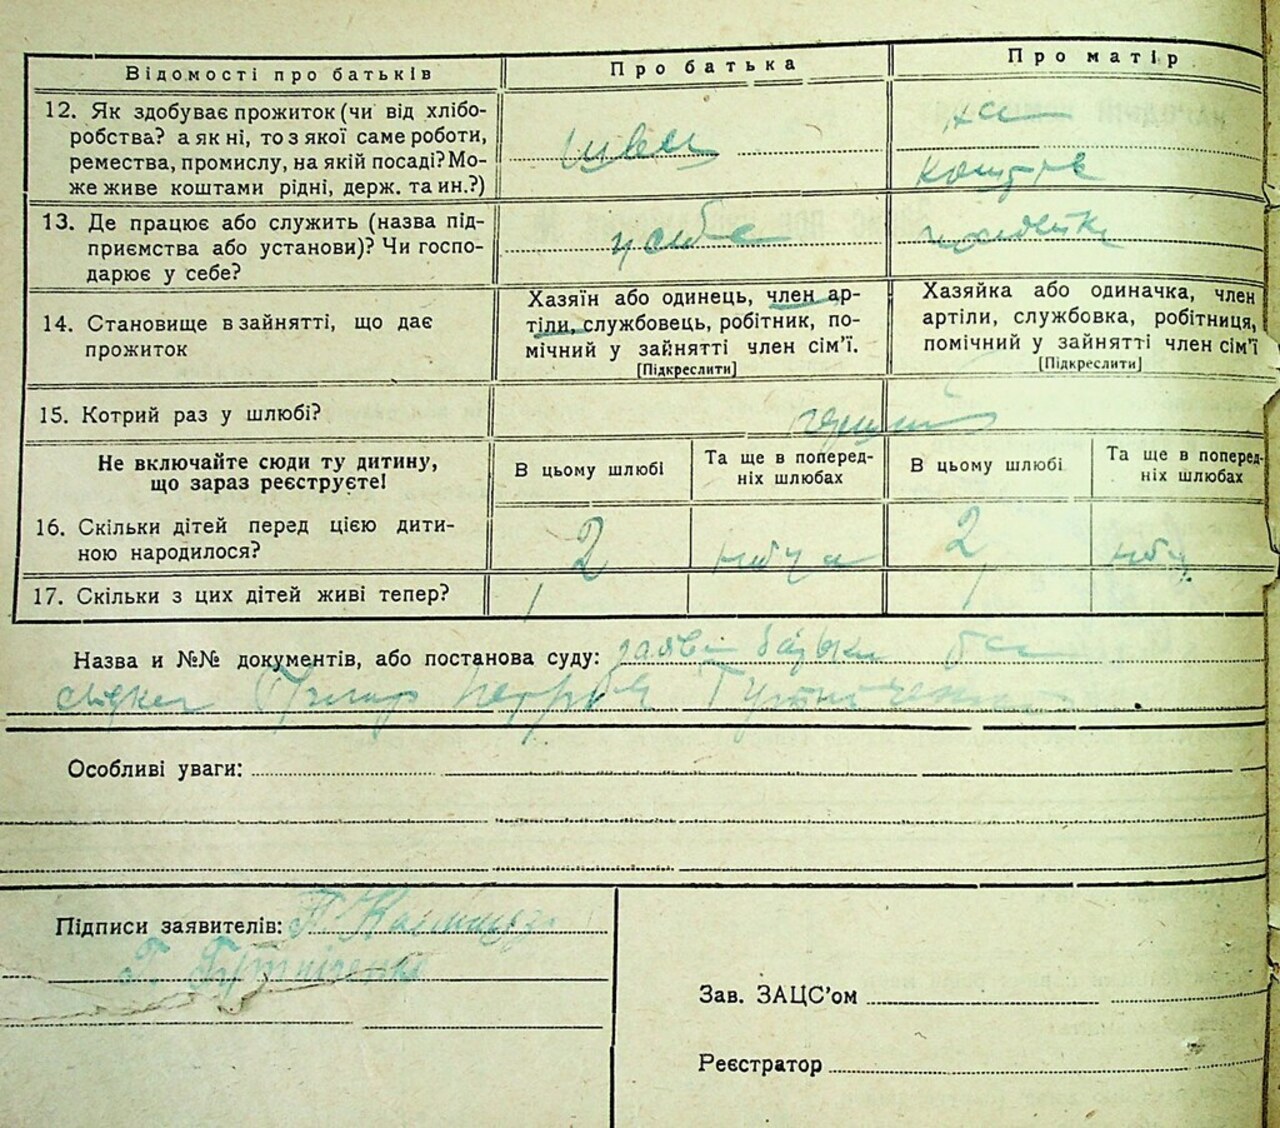 Відомості про батьків
Про батька
Про матір
12. Як здобуває прожиток (чи від хлібо-
робства? а як ні, то з якої саме роботи,
ремества, промислу, на якій посаді? Мо-
же живе коштами рідні, держ. та ин.?)
швець
коштів
13. Де працює або служить (назва під-
приємства або установи)? Чи госпо-
дарює у себе?
у себе
14. Становище в зайнятті, що дає
прожиток
Хазяїн або одинець, член ар-
тіли, службовець, робітник, по-
мічний у зайнятті член сім'ї.
[Підкреслити]
Хазяйка або одиначка, член
артіли, службовка, робітниця,
помічний у зайнятті член сім'ї
[Підкреслити]
15. Котрий раз у шлюбі?
Не включайте сюди ту дитину,
що зараз реєструєте!
В цьому шлюбі
Та ще в поперед-
ніх шлюбах
В цьому шлюбі
Та ще в поперед-
ніх шлюбах
16. Скільки дітей перед цією дити-
ною народилося?
2
2
17. Скільки з цих дітей живі тепер?
1
1
Назва и №№ документів, або постанова суду: заява батька
Особливі уваги:
Підписи заявителів:
Зав. ЗАЦС'ом
Реєстратор